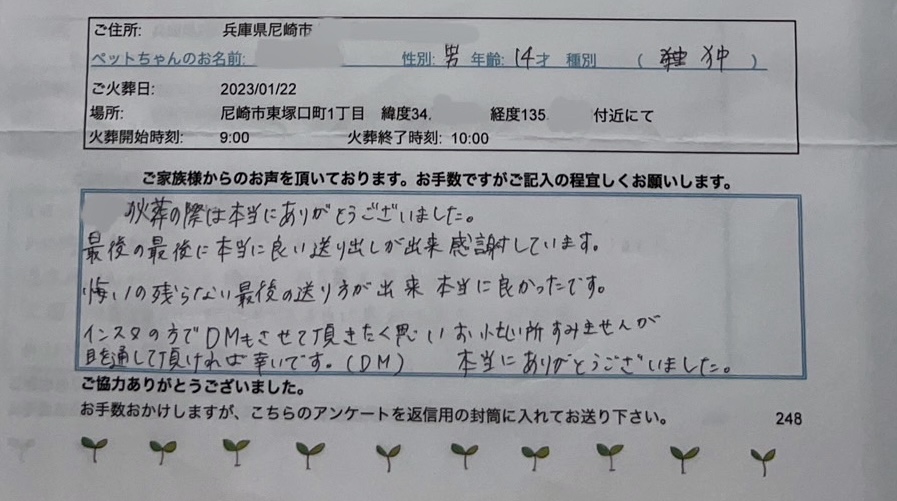 ご住所: 兵庫県尼崎市
ペットちゃんのお名前: 性別: 男 年齢: 14才 種別 ( )
ご火葬日: 2023/01/22
場所: 尼崎市東塚口町1丁目 緯度34. 経度135 付近にて
火葬開始時刻: 9:00 火葬終了時刻: 10:00
ご家族様からのお声を頂いております。お手数ですがご記入の程宜しくお願いします。
火葬の際は本当にありがとうございました。
最後の最後に本当に良い送り出しが出来感謝しています。
悔いの残らない最後の送り方が出来 本当に良かったです。
インスタの方でDMもさせて頂きたく思い お忙しい所すみませんが
目を通して頂ければ幸いです。(DM) 本当にありがとうございました。
ご協力ありがとうございました。
お手数おかけしますが、こちらのアンケートを返信用の封筒に入れてお送り下さい。 248